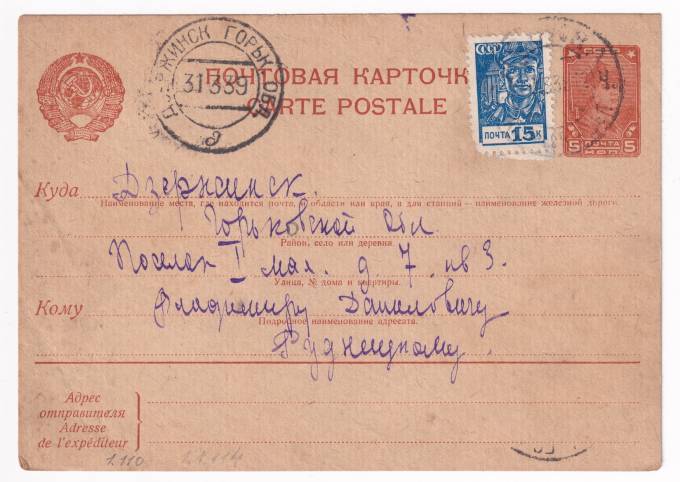 ДЗЕРЖИНСК ГОРЬК. ОБЛ.
31 3 39
ПОЧТОВАЯ КАРТОЧК
CARTE POSTALE
СССР
ПОЧТА 15 К
5 ПОЧТА 5
КОП
Куда Дзержинск.
Наименование места, где находится почта, и области или края, а для станций — наименование железной дороги.
Горьковской Обл
Район, село или деревня
Поселок I мая. д. 7. кв 3.
Улица, № дома и квартиры.
Кому Владимиру Даниловичу
Подробное наименование адресата.
Рудницкому.
Адрес
отправителя
Adresse
de l'expéditeur
1.110